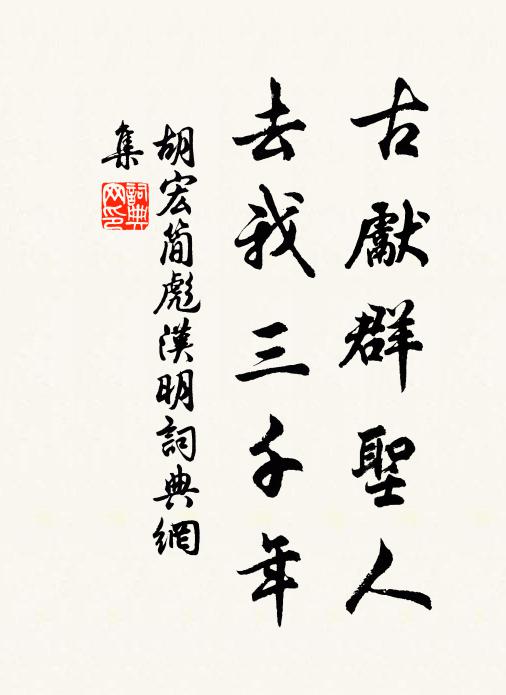 古獻群聖人
去我三千年
胡宏簡彪漢明詞典網
集
詞典
网印